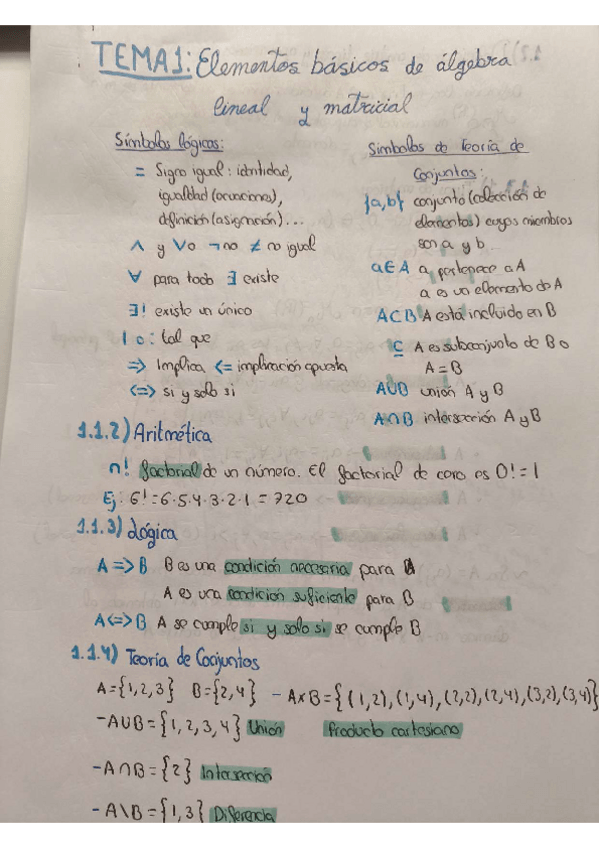 TEMA 1: Elementos básicos de álgebra
lineal y matricial
Símbolos lógicos:
= Signo igual: identidad,
igualdad (ecuaciones),
definición (asignación)...
∧ y ∨ o ¬ no ≠ no igual
∀ para todo ∃ existe
∃! existe un único
| o : tal que
=> Implica <= implicación opuesta
<=> si y solo si
Símbolos de Teoría de
Conjuntos:
{a,b} conjunto (colección de
elementos) cuyos miembros
son a y b
a∈A a pertenece a A
a es un elemento de A
A⊂B A está incluido en B
⊆ A es subconjunto de B o
A = B
A∪B unión A y B
A∩B intersección A y B
1.1.2) Aritmética
n! factorial de un número. El factorial de cero es 0! = 1
Ej: 6! = 6·5·4·3·2·1 = 720
1.1.3) Lógica
A => B B es una condición necesaria para A
A es una condición suficiente para B
A <=> B A se cumple si y solo si se cumple B
1.1.4) Teoría de Conjuntos
A={1,2,3} B={2,4} - A×B={(1,2),(1,4),(2,2),(2,4),(3,2),(3,4)}
- A∪B={1,2,3,4} Unión Producto cartesiano
- A∩B={2} Intersección
- A\B={1,3} Diferencia